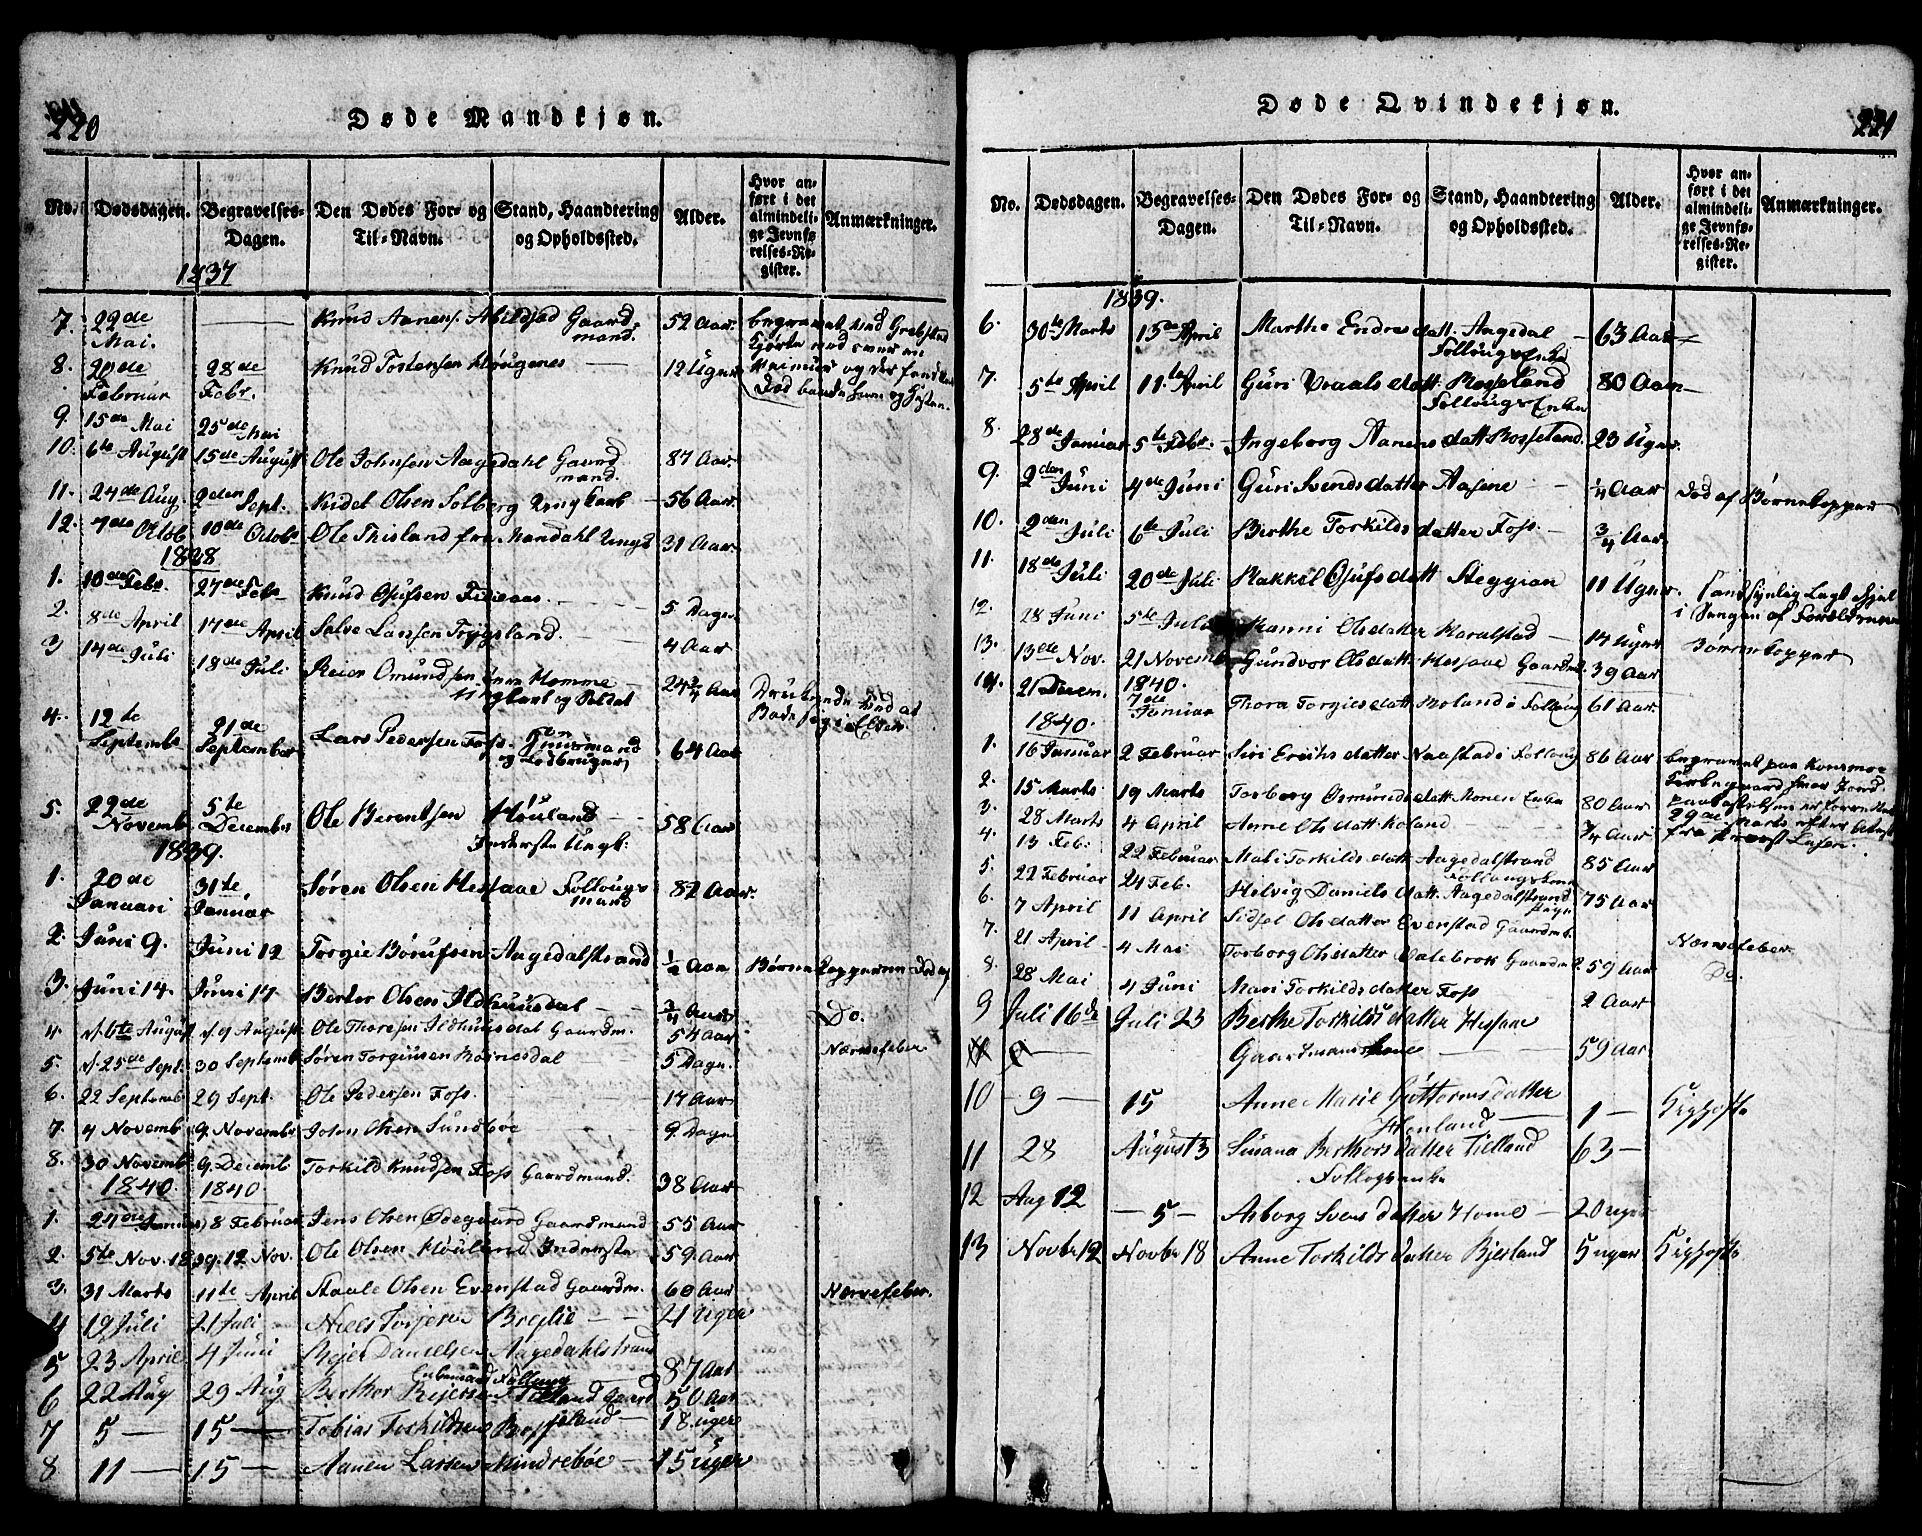 220
Døde Mandkjøn.
No. Dødsdagen. Begravelses-Dagen. Den Dødes For- og Til-Navn. Stand, Haandtering og Opholdssted. Alder. Hvor anført i det almindelige Jevnførelses-Register. Anmærkninger.
1837
7. 22de Mai. Knud Aanens. Abildstad Gaardmand. 52 Aar.
8. 20de Februar 28de Febr. Knud Tostensen Høugenes 12 Uger
9. 15de Mai 25de Mai
10. 6te August 15de August Ole Johnsen Aagedahl Gaardmand. 87 Aar.
11. 24de Aug. 2den Sept. Kidel Olsen Solberg Ungkarl 56 Aar
12. 7de Octob. 10de Octobr Ole Thisland fra Mandahl Ungk 31 Aar
1838
1. 10de Febr. 27de Febr Knud Ojufsen 5 Dage
2. 8de April 17de April Salve Larssen Trygsland. 4 Aar
3 14de Juli 18de Juli Reier Omundsen Homme Ungkarl og Soldat 24 3/4 Aar
4. 12te Septembr 21de September Lars Pedersen Foss. Huusmand og Jordbruger 64 Aar
5. 22de Novemb. 5te December Ole Berentsen Høuland Inderste Ungk. 58 Aar
1839.
1. 20de Januari 31te Januar Søren Olsen Hessaae Follougsmand 82 Aar.
2. Juni 9. Juni 12 Torgie Børufsen Aagedalstrand 1/2 Aar Børnekopperne Død af
3. Juni 14. Juni 17 Berter Olsen Ildhuusdal 3/4 Aar Do.
4. 6te August 9 August Ole Thoresen Ildhuusdal Gaardm. 54 Aar Nervefeber
5. 25de Sept. 30 Septemb. Søren Torgiusen Røinesdal 5 Dage.
6. 22 Septemb. 29 Sept. Ole Pedersen Foss. 17 Aar
7. 4 Novemb 9. Novembr John Olsen Sundbøe 9 Dage
8. 30 Novemb. 9. Decemb Torkild Knudsen Foss Gaardmand. 38 Aar
1840. 1840
1. 24de Januar 8 Februar Jens Olsen Ødegaard Gaardmand 55 Aar
2. 5te Nov. 1839. 12 Nov. Ole Olsen Høuland Inderste 59. Aar
3. 31 Marts 11te April Staale Olsen Evenstad Gaardm. 60 Aar Nervefeber.
4 19 Juli 21 Juli Niels Torjersen Breglie 21 Uger
5 23 April 4 Juni Rejer Danielsen Aagedahlstrand 87 Aar
6 22 Aug 29 Aug Berthor Rejersen Tilland Gaard 50 Aar
7 5 15 Tobias Torkildsen Bossland 18 uger
8 11 15 Aanen Larsen Mindrebøe 15 uger
221
Døde Qvindekjøn.
No. Dødsdagen. Begravelses-Dagen. Den Dødes For- og Til-Navn. Stand, Haandtering og Opholdssted. Alder. Hvor anført i det almindelige Jevnførelses-Register. Anmærkninger.
1839.
6. 30te Marts 15de April Marthe Endresdatt. Aagedal Follougs Enke 63 Aar
7. 5te April 11te April Guri Vraalsdatt. Rosseland Follougs Enke 80 Aar
8. 28de Januar 5te Febr. Ingeborg Aanensdatt Rosseland. 23 Uger.
9. 2den Juni 4de Juni Guri Svendsdatter Aasene 1/4 Aar Død af Børnekopper
10. 2den Juli 6te Juli Berthe Torkildsdatter Foss 3/4 Aar
11. 18de Juli 20de Juli Rakkel Ojufsdatt Steggian 11 Uger.
12. 28 Juni 5te Juli Hanni Olsdatter Haralstad 17 Uger
13. 13de Nov. 21 Novemb Gundvor Olsdatt. Hessaae Gaardm. 39 Aar Børnekopper
14. 21 Decem. 1840. 7de Januar Thora Torgiesdatt Roland i Follog 61 Aar.
1840.
1. 16 Januar 2 Februar Siri Eriksdatter Naastad i Follog 86 Aar
2. 15 Marts 19 Marts Torborg Osmundsdatt. Monen Enke 80 Aar
3. 28 Marts 4 April Anne Olsdatt Roland 3/4 Aar
4. 13 Feb. 22 Februar Mali Torkildsdatt Aagedalstrand 85 Aar
5. 22 Februar 24 Feb. Helvig Danielsdatt. Aagedalstrand 75 Aar
6. 7 April 11 April Sidsel Olsdatter Evenstad Gaardmk.
7. 21 April 4 Mai Torborg Olsdatter Valebrok Gaardmk. 59 Aar Nervefeber
8. 28 Mai 4 Juni Mari Torkildsdatter Foss 2 Aar Do.
9 Juli 16de Juli 23 Berthe Torkildsdatter Hessaae Gaardmandskone 59 Aar
10 9 15 Anne Marie Guttormsdatter Stenland 1 Kighoste
11 28 August 3 Susana Berthorsdatter Tilland Follogsenke 63
12 Aug 12 5 Asborg Svensdatter Home 20 uger
13 Novbr 12 Novbr 18 Anne Torkildsdatter Bjesland 5 uger Kighoste